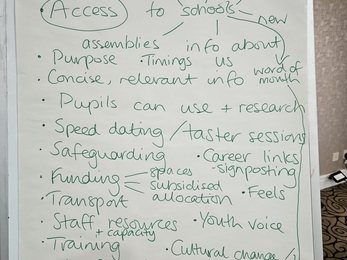 • Access to schools
new
assemblies info about us
• Purpose • Timings
word of mouth
• Concise, relevant info
• Pupils can use + research
• Speed dating / taster sessions
• Safeguarding • Career links
- signposting
• Funding spaces
subsidised
allocation • Feels
• Transport
• Staff, resources • Youth voice
+ capacity
• Training • Cultural change /